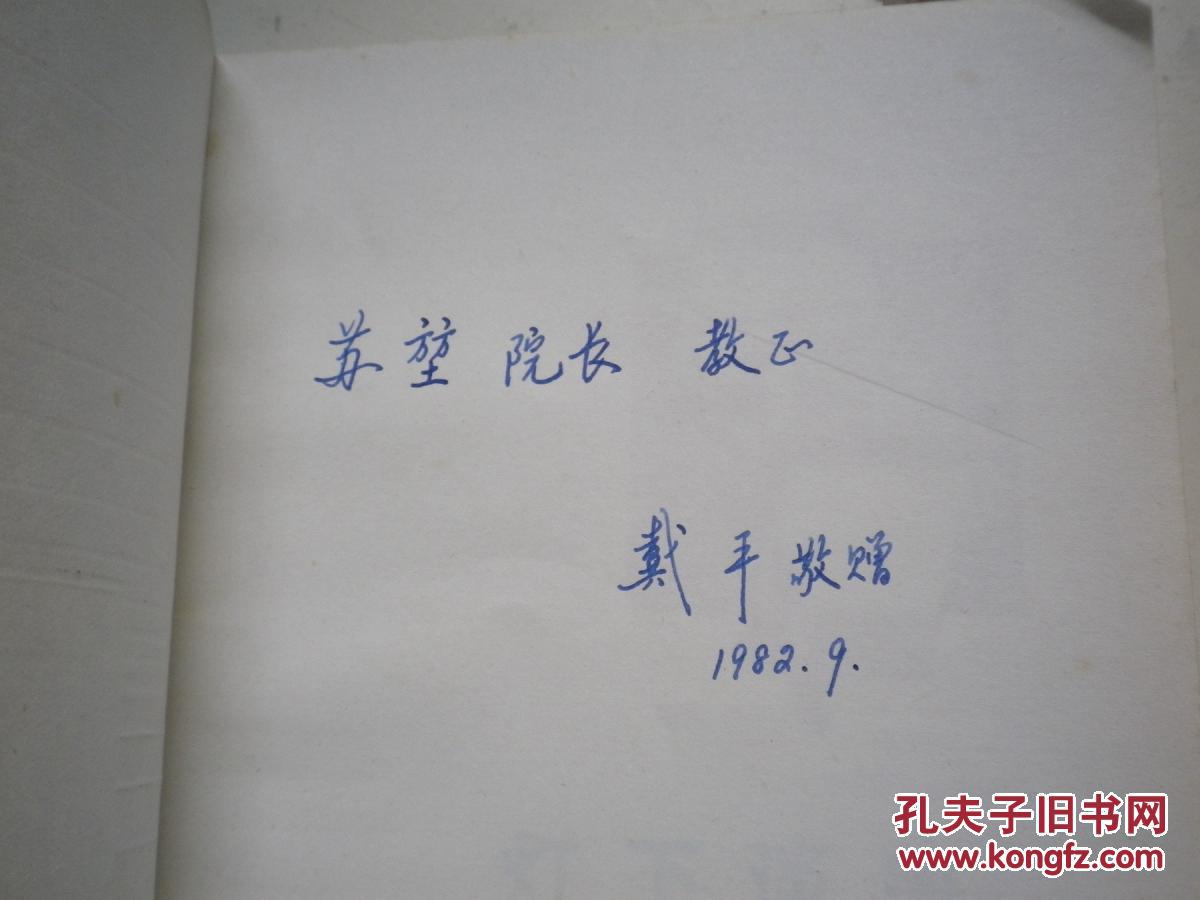 苏堃 院长 教正
戴平敬赠
1982.9.
孔夫子旧书网
www.kongfz.com